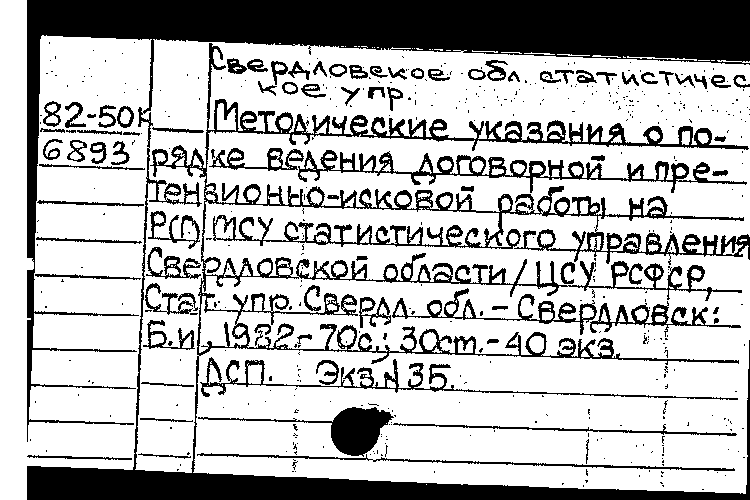 Свердловское обл. статистичес
кое упр.
82-50к Методические указания о по-
6893 рядке ведения договорной и пре-
тензионно-исковой работы на
Р(Г) МСУ статистического управления
Свердловской области/ЦСУ РСФСР,
Стат. упр. Свердл. обл.-Свердловск:
Б.и., 1982.-70с.; 30ст.-40 экз.
ДСП. Экз.№35.